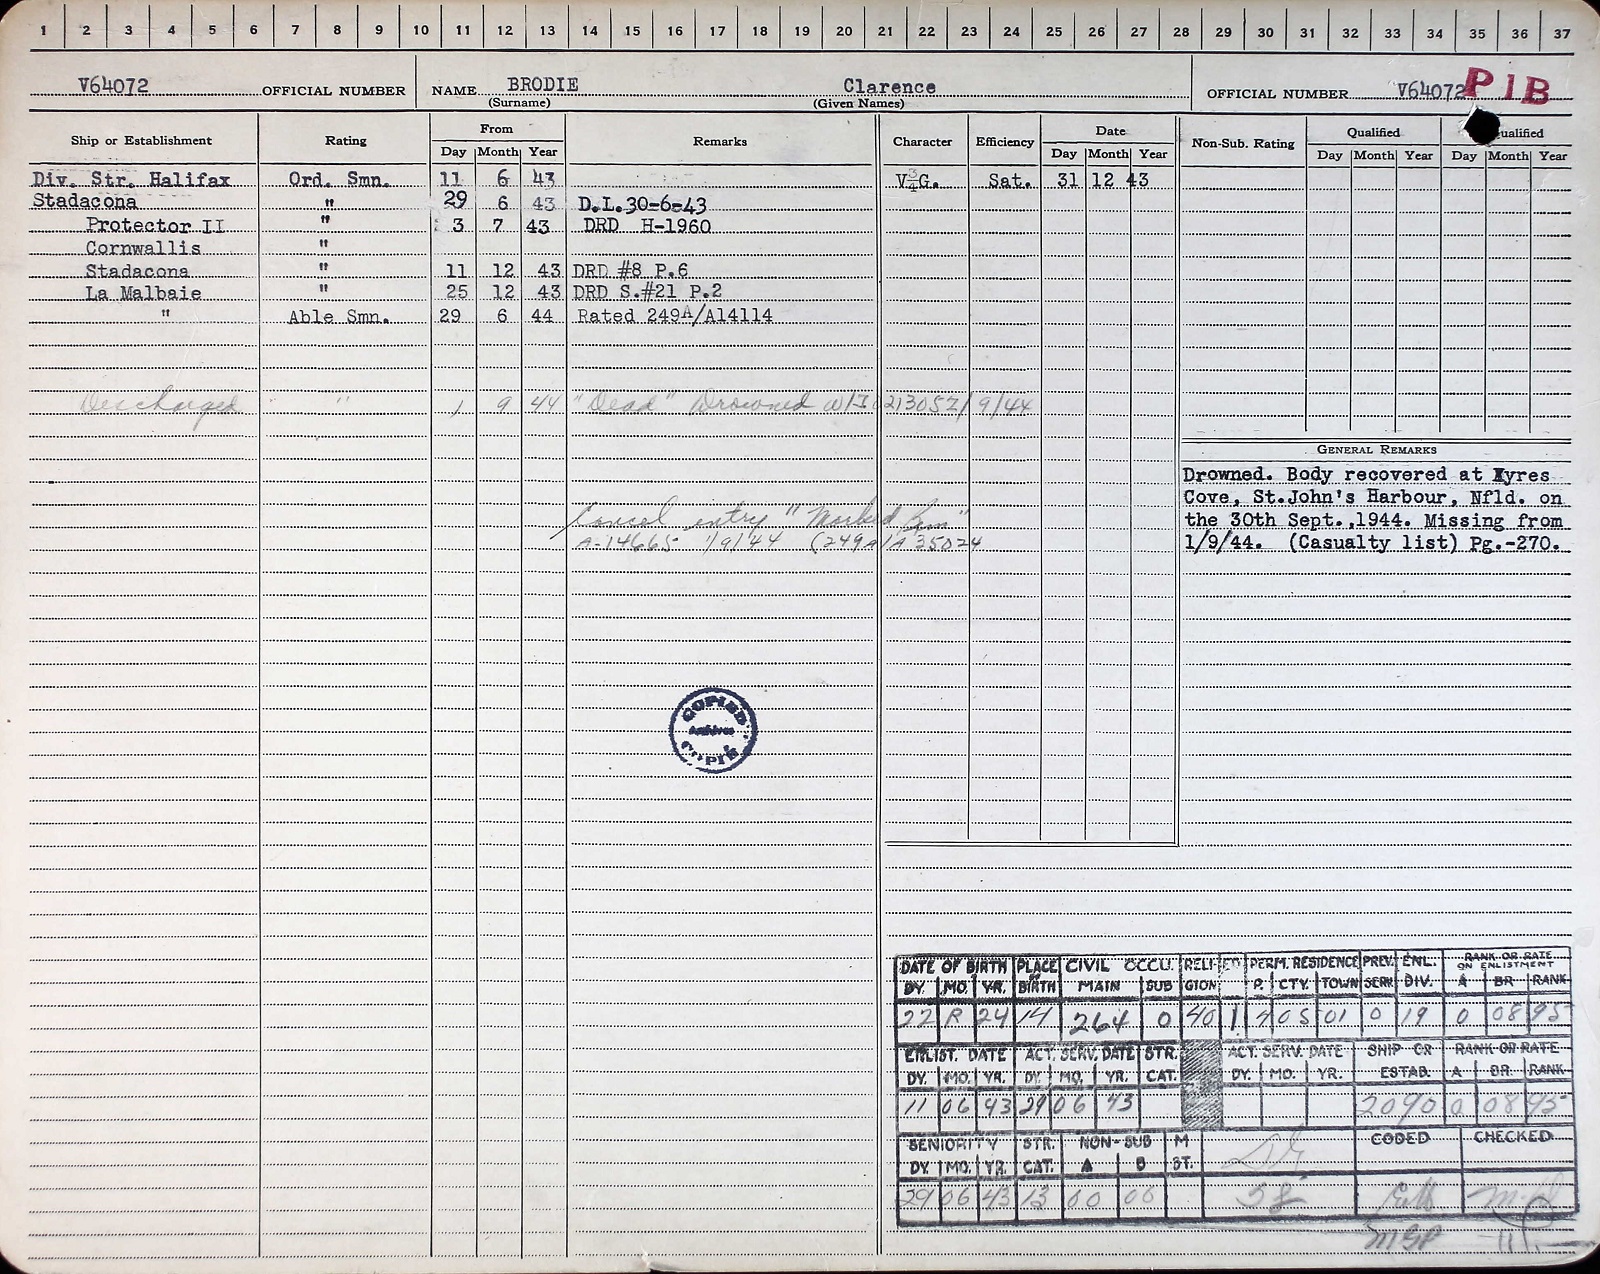 1 2 3 4 5 6 7 8 9 10 11 12 13 14 15 16 17 18 19 20 21 22 23 24 25 26 27 28 29 30 31 32 33 34 35 36 37
V64072 OFFICIAL NUMBER NAME BRODIE Clarence OFFICIAL NUMBER V64072 P1B
(Surname) (Given Names)
Ship or Establishment Rating From Remarks Character Efficiency Date Non-Sub. Rating Qualified Qualified
Day Month Year Day Month Year Day Month Year Day Month Year
Div. Str. Halifax Ord. Smn. 11 6 43 V¾G. Sat. 31 12 43
Stadacona " 29 6 43 D.L.30-6-43
Protector II " 3 7 43 DRD H-1960
Cornwallis "
Stadacona " 11 12 43 DRD #8 P.6
La Malbaie " 25 12 43 DRD S.#21 P.2
" Able Smn. 29 6 44 Rated 249A/A14114
Discharged " " 1 9 44 "Dead" Drowned 021305Z/9/44
Cancel entry "Marked Run"
A-14665 1/9/44 (249A/A35024
GENERAL REMARKS
Drowned. Body recovered at Ayres
Cove, St.John's Harbour, Nfld. on
the 30th Sept.,1944. Missing from
1/9/44. (Casualty list) Pg.-270.
COPIED
Archives
COPIÉ
DATE OF BIRTH PLACE OF BIRTH CIVIL OCCU. RELIGION ED PERM. RESIDENCE PREV. SERV. ENL. DIV. RANK OR RATE ON ENLISTMENT
DY. MO. YR. MAIN SUB P. CTY. TOWN A BR RANK
22 R 24 14 264 0 40 1 01 0 19 0 08 95
ENLIST. DATE ACT. SERV. DATE STR. CAT. ACT. SERV. DATE SHIP OR ESTAB. RANK OR RATE
DY. MO. YR. DY. MO. YR. DY. MO. YR. A BR. RANK
11 06 43 29 06 43 2090 0 08 95
SENIORITY STR. CAT. NON-SUB M ST. CODED CHECKED
DY. MO. YR. A B
29 06 43 13 00 00